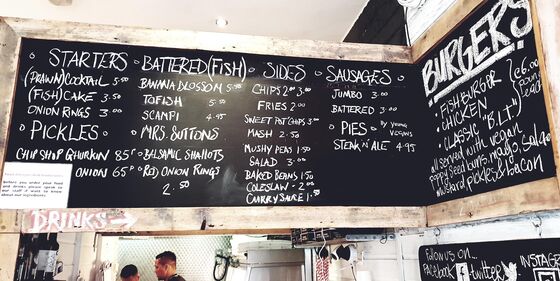 STARTERS
(PRAWN) COCKTAIL 5.50
(FISH) CAKE 3.50
ONION RINGS 3.00
PICKLES
CHIP SHOP GHURKIN 85P
ONION 65P
BATTERED (FISH)
BANANA BLOSSOM 5.50
TOFISH 5.50
SCAMPI 4.95
MRS. BUTTONS
BALSAMIC SHALLOTS
RED ONION RINGS
2.50
SIDES
CHIPS 3.00
FRIES 2.00
SWEET POT CHIPS 3.00
MASH 2.50
MUSHY PEAS 1.50
SALAD 3.00
BAKED BEANS 1.50
COLESLAW 2.00
CURRY SAUCE 1.50
SAUSAGES
JUMBO 3.00
BATTERED 3.00
PIES BY YOUNG VEGANS
STEAK N' ALE 4.95
BURGERS
FISHBURGER
CHICKEN
CLASSIC "B.L.T"
£6.00
each
all served with vegan
poppy seed buns, mayo, Salad
mustard pickles & bacon
Before you order your food
and drinks please speak to
our staff if want to know
about our ingredients.
DRINKS →
Follow us on...
facebook
twitter
INSTAG